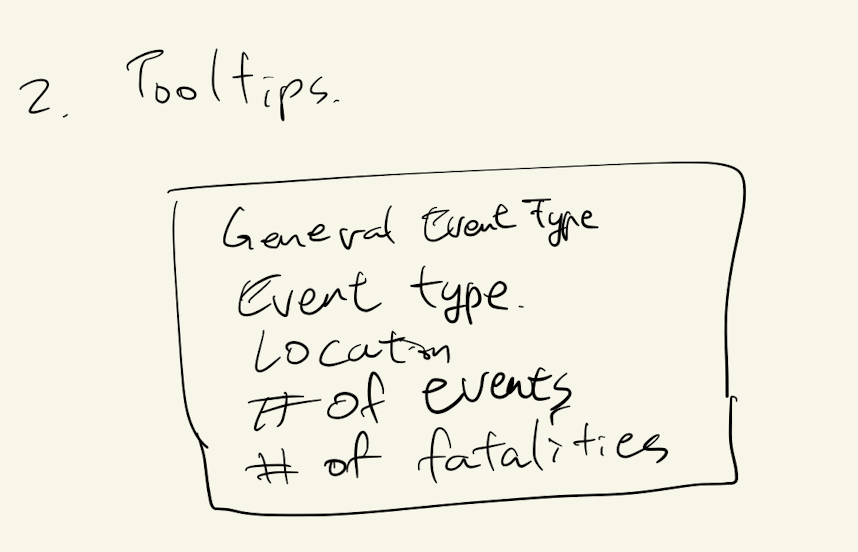 2. Tooltips.
General Event Type
Event type.
Location
# of events
# of fatalities